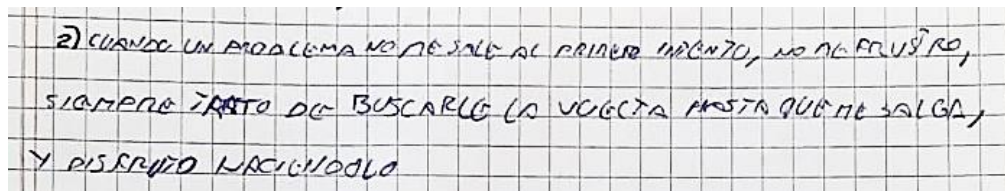 2) CUANDO UN PROBLEMA NO ME SALE AL PRIMER INTENTO, NO ME FRUSTRO,
SIEMPRE TRATO DE BUSCARLE LA VUELTA HASTA QUE ME SALGA,
Y DISFRUTO HACIENDOLO